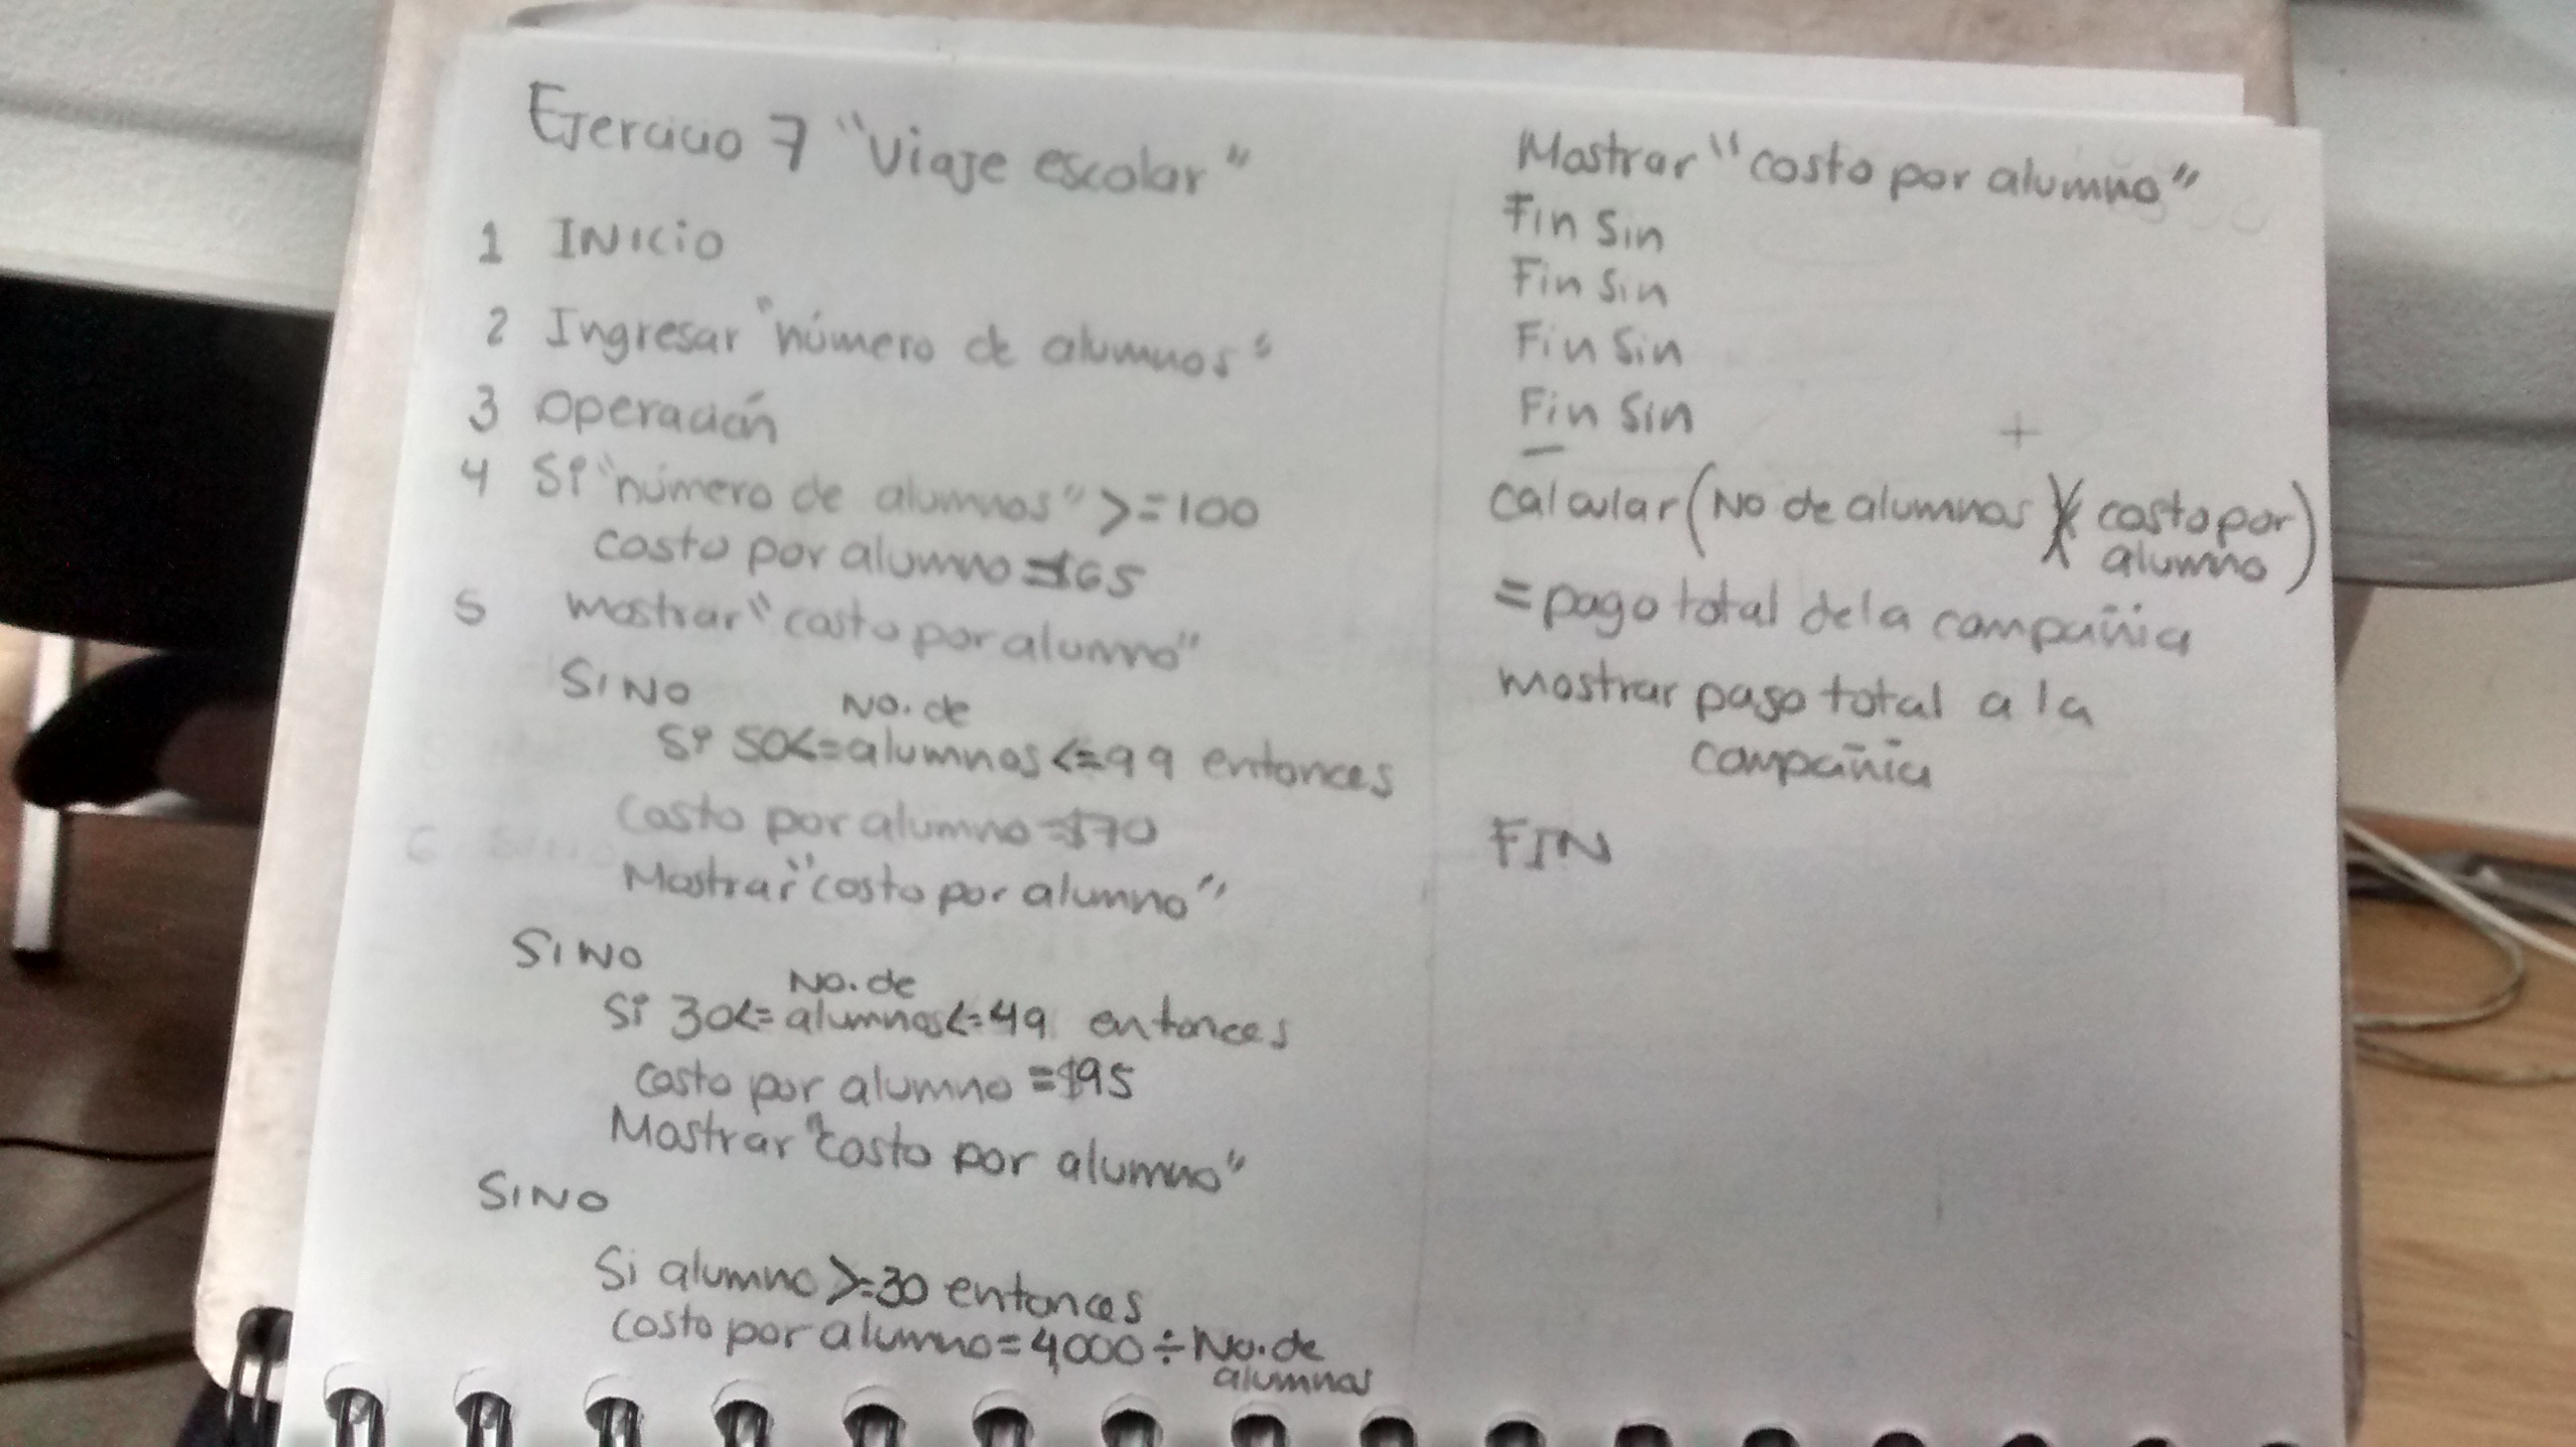 Ejercicio 7 "Viaje escolar"
1 INICIO
2 Ingresar "número de alumnos"
3 Operación
4 Si "número de alumnos" >=100
costo por alumno =$65
5 mostrar "costo por alumno"
SINO
No. de
Si 50<=alumnos<=99 entonces
costo por alumno =$70
Mostrar "costo por alumno"
SINO
No. de
Si 30<=alumnos<=49 entonces
costo por alumno =$95
Mostrar "costo por alumno"
SINO
Si alumno >=30 entonces
costo por alumno=4000÷No. de
alumnos
Mostrar "costo por alumno"
Fin Sin
Fin Sin
Fin Sin
Fin Sin
calcular (No de alumnos)(costo por
alumno)
=pago total de la compañia
mostrar pago total a la
compañia
FIN